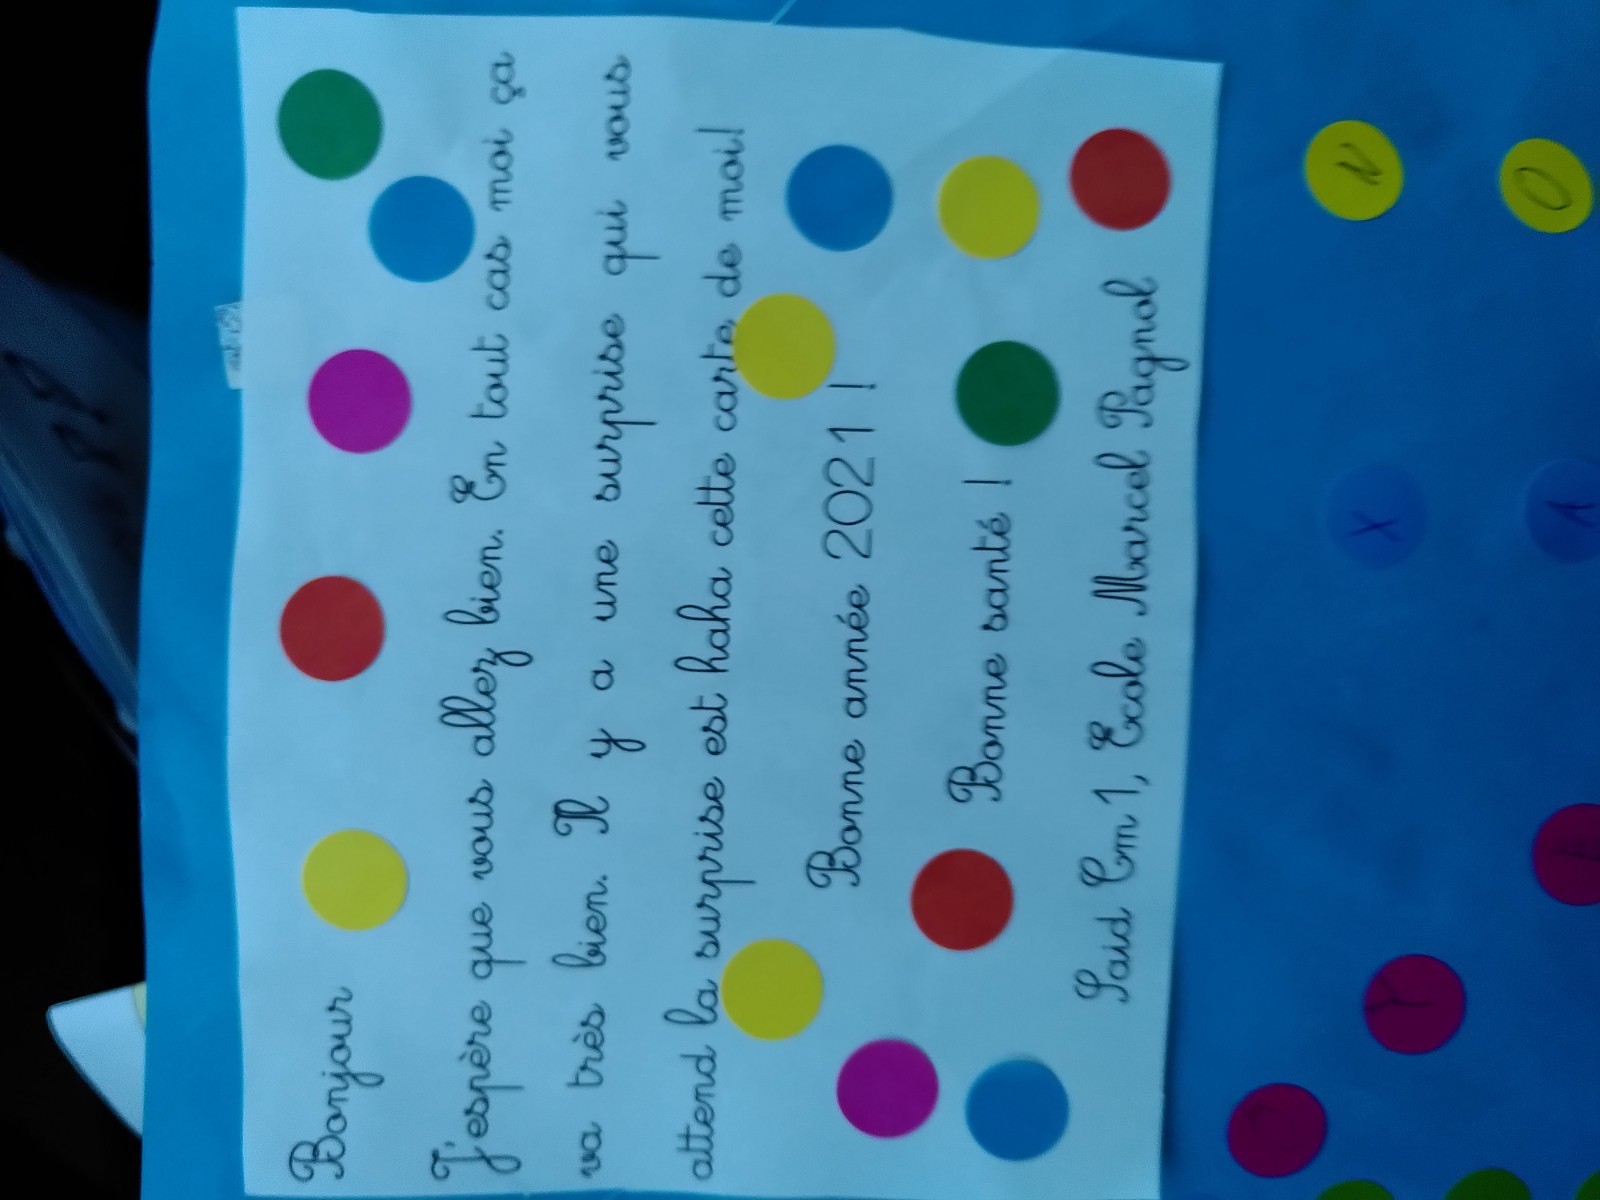 Bonjour
J'espère que vous allez bien. En tout cas moi ça
va très bien. Il y a une surprise qui vous
attend la surprise est haha cette carte de moi!
Bonne année 2021 !
Bonne santé !
Said Cm1, Ecole Marcel Pagnol
N
O
X
Y